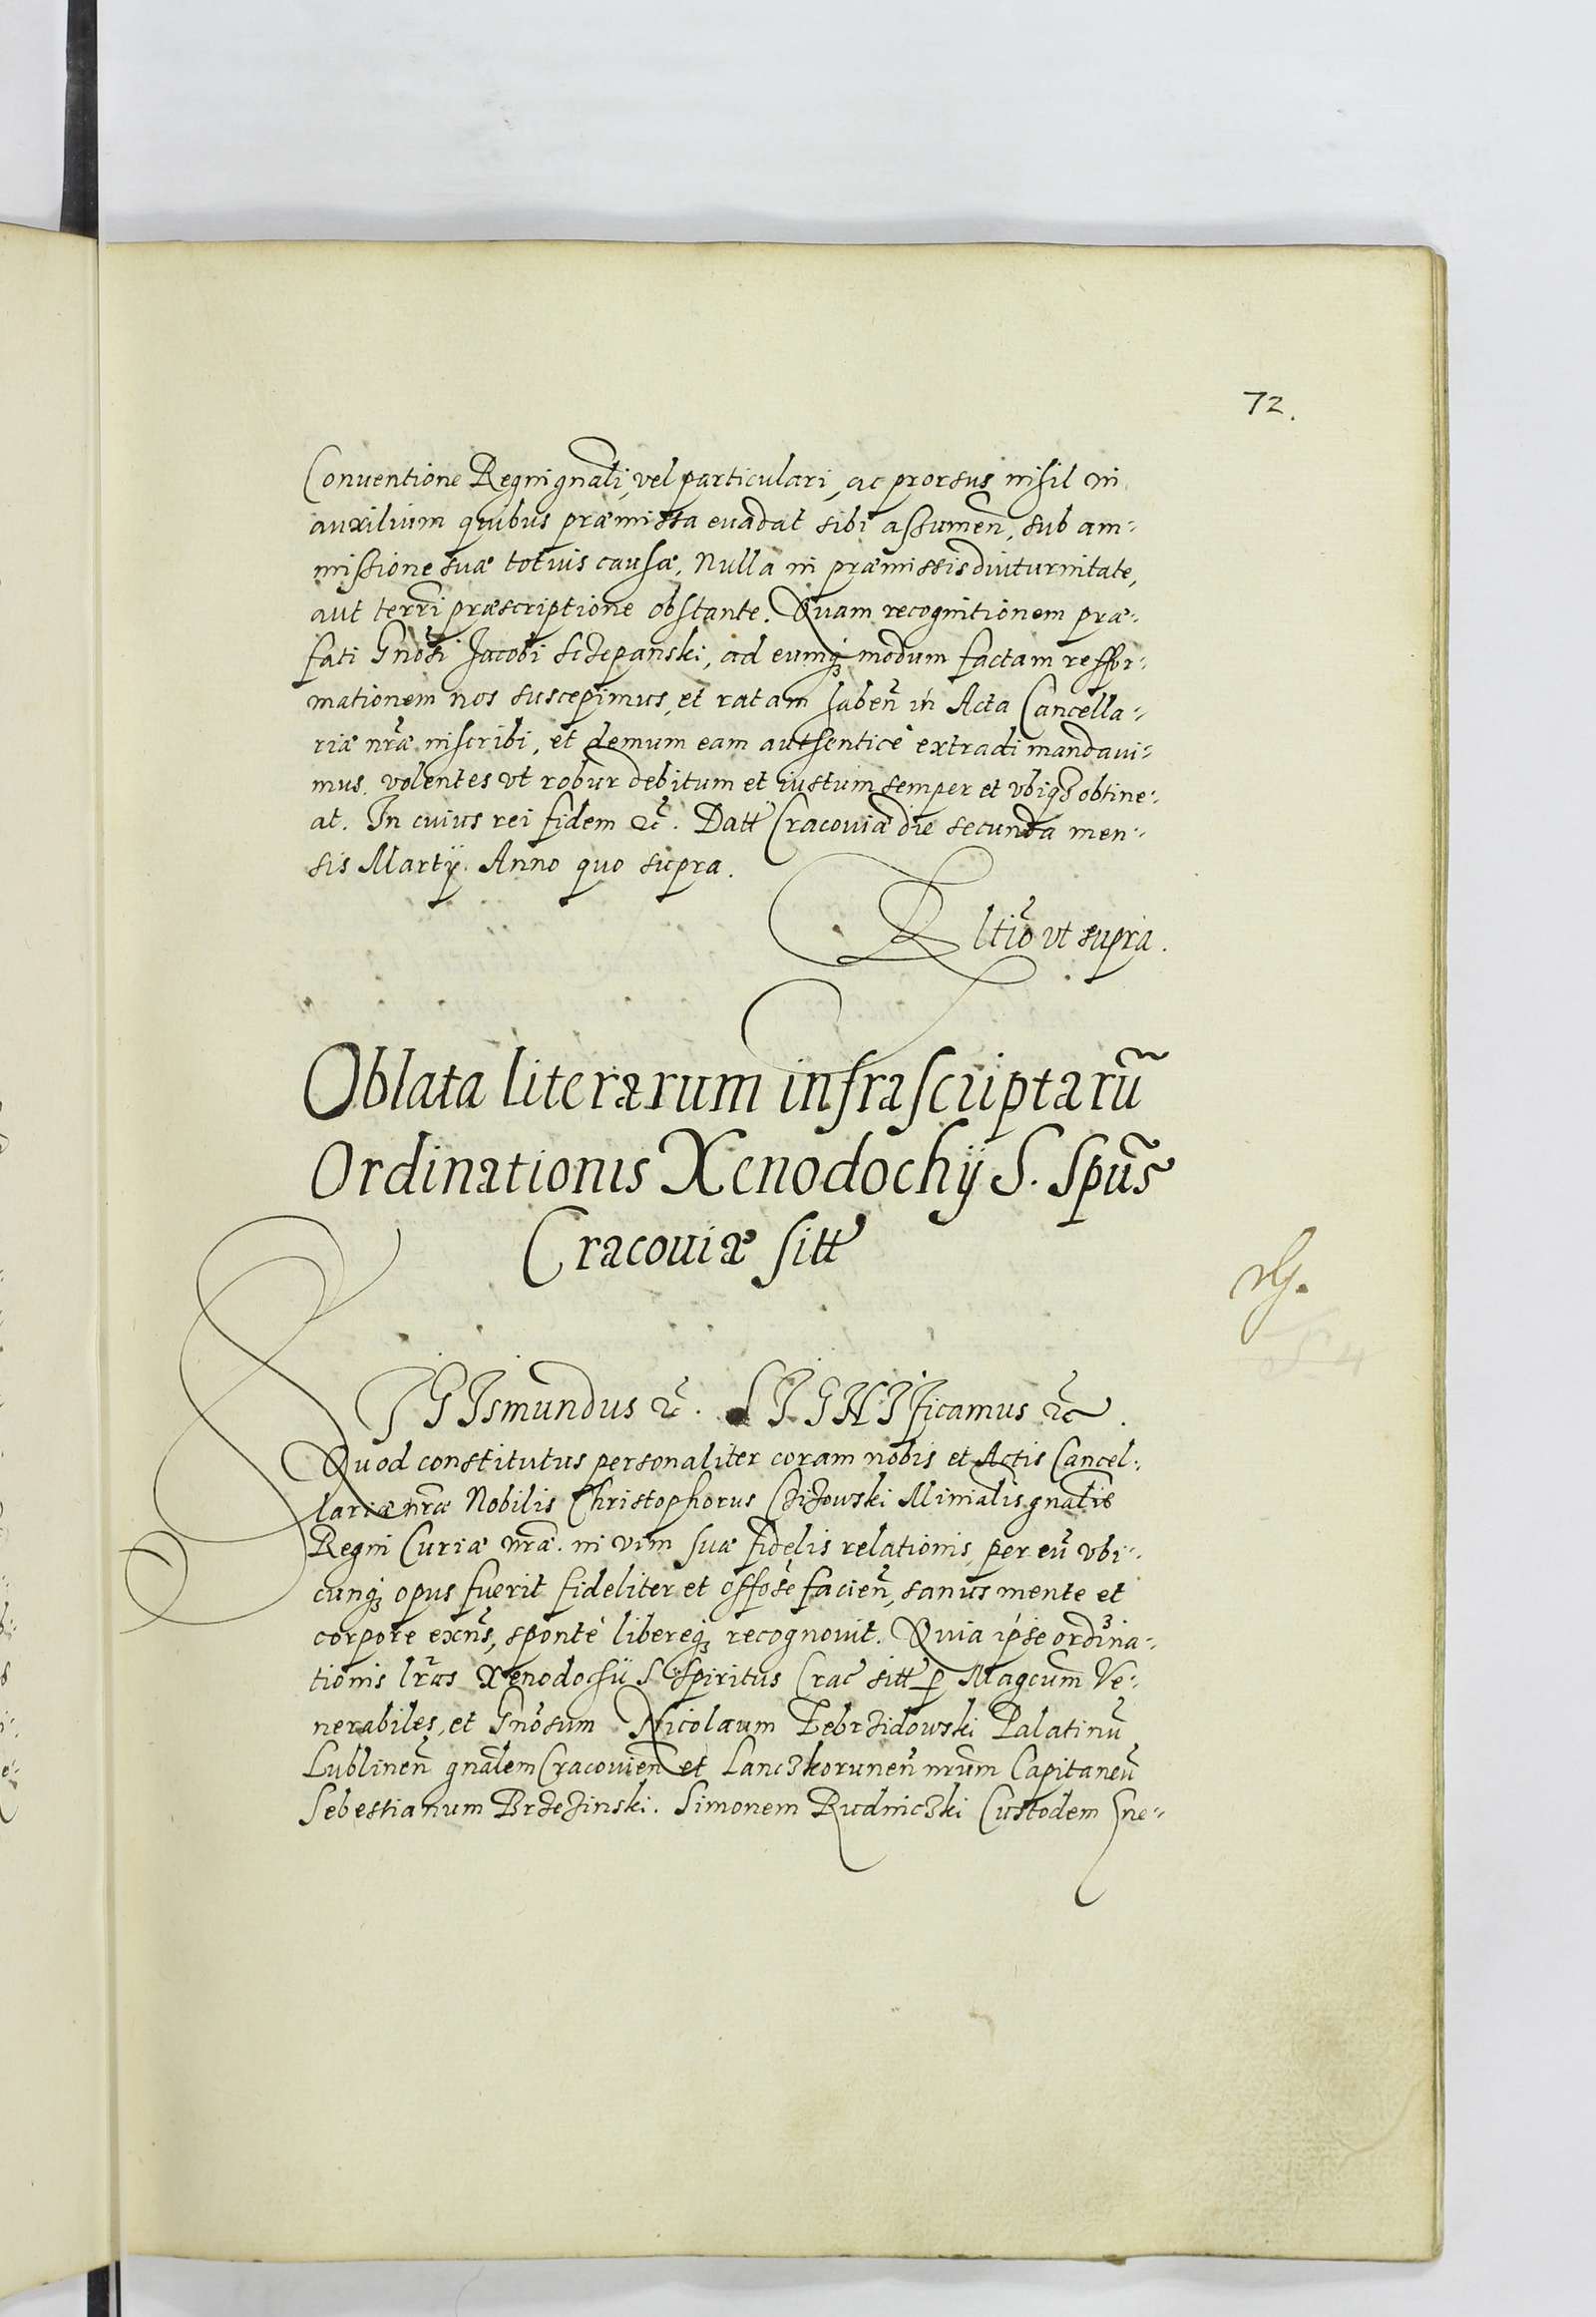 72.
Conuentione Regni gnali, vel particulari, ac prorsus nihil in
auxilium quibus præmissa euadat sibi assumeñ, sub am-
missione suæ totius causæ, Nulla in præmissis diuturnitate,
aut terri præscriptione obstante. Quam recognitionem præ-
fati Gnosi Jacobi Sczepanski, ad eumq3 modum factam reffor-
mationem nos suscepimus, et ratam habeñ in Acta Cancella-
riæ nræ inscribi, et demum eam authenticè extradi mandaui-
mus. volentes vt robur debitum et iustum semper et vbiq3 obtine-
at. In cuius rei fidem &c. Datt Cracouiæ die secunda men-
sis Martij. Anno quo supra.
Rltio vt supra.
Oblata literarum infrascriptarũ
Ordinationis Xenodochij S. Spũs
Cracouiæ sitt
SIGIsmundus &c. SIGNIficamus &c.
Quod constitutus personaliter coram nobis et Actis Cancel-
lariæ nræ Nobilis Christophorus Czizowski Minialis gnalis
Regni Curiæ nræ. in vim suæ fidelis relationis, per eũ vbi-
cunq3 opus fuerit fideliter et offose facieñ, sanus mente et
corpore exñs, spontè libereq3 recognouit. Quia ipse ordina-
tionis lras Xenodochii S. Spiritus Crac sitt p Magcum Ve-
nerabiles, et Gnosum Nicolaum Zebrzidowski Palatinũ
Lublineñ gnalem Cracouieñ et Lanczkoruneñ nrum Capitaneũ
Sebestianum Brzezinski. Simonem Rudniczki Custodem Gne-